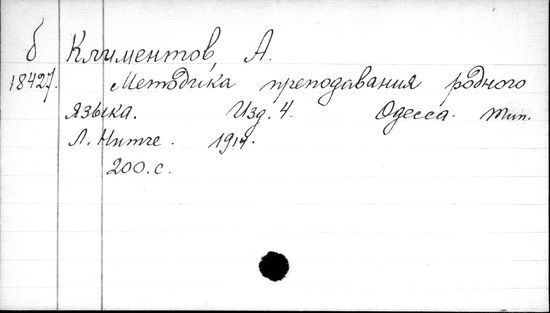 б Климентов, А.
18427. Методика преподавания родного
языка. Изд. 4. Одесса. тип.
Л. Нитче. 1914.
200.с.